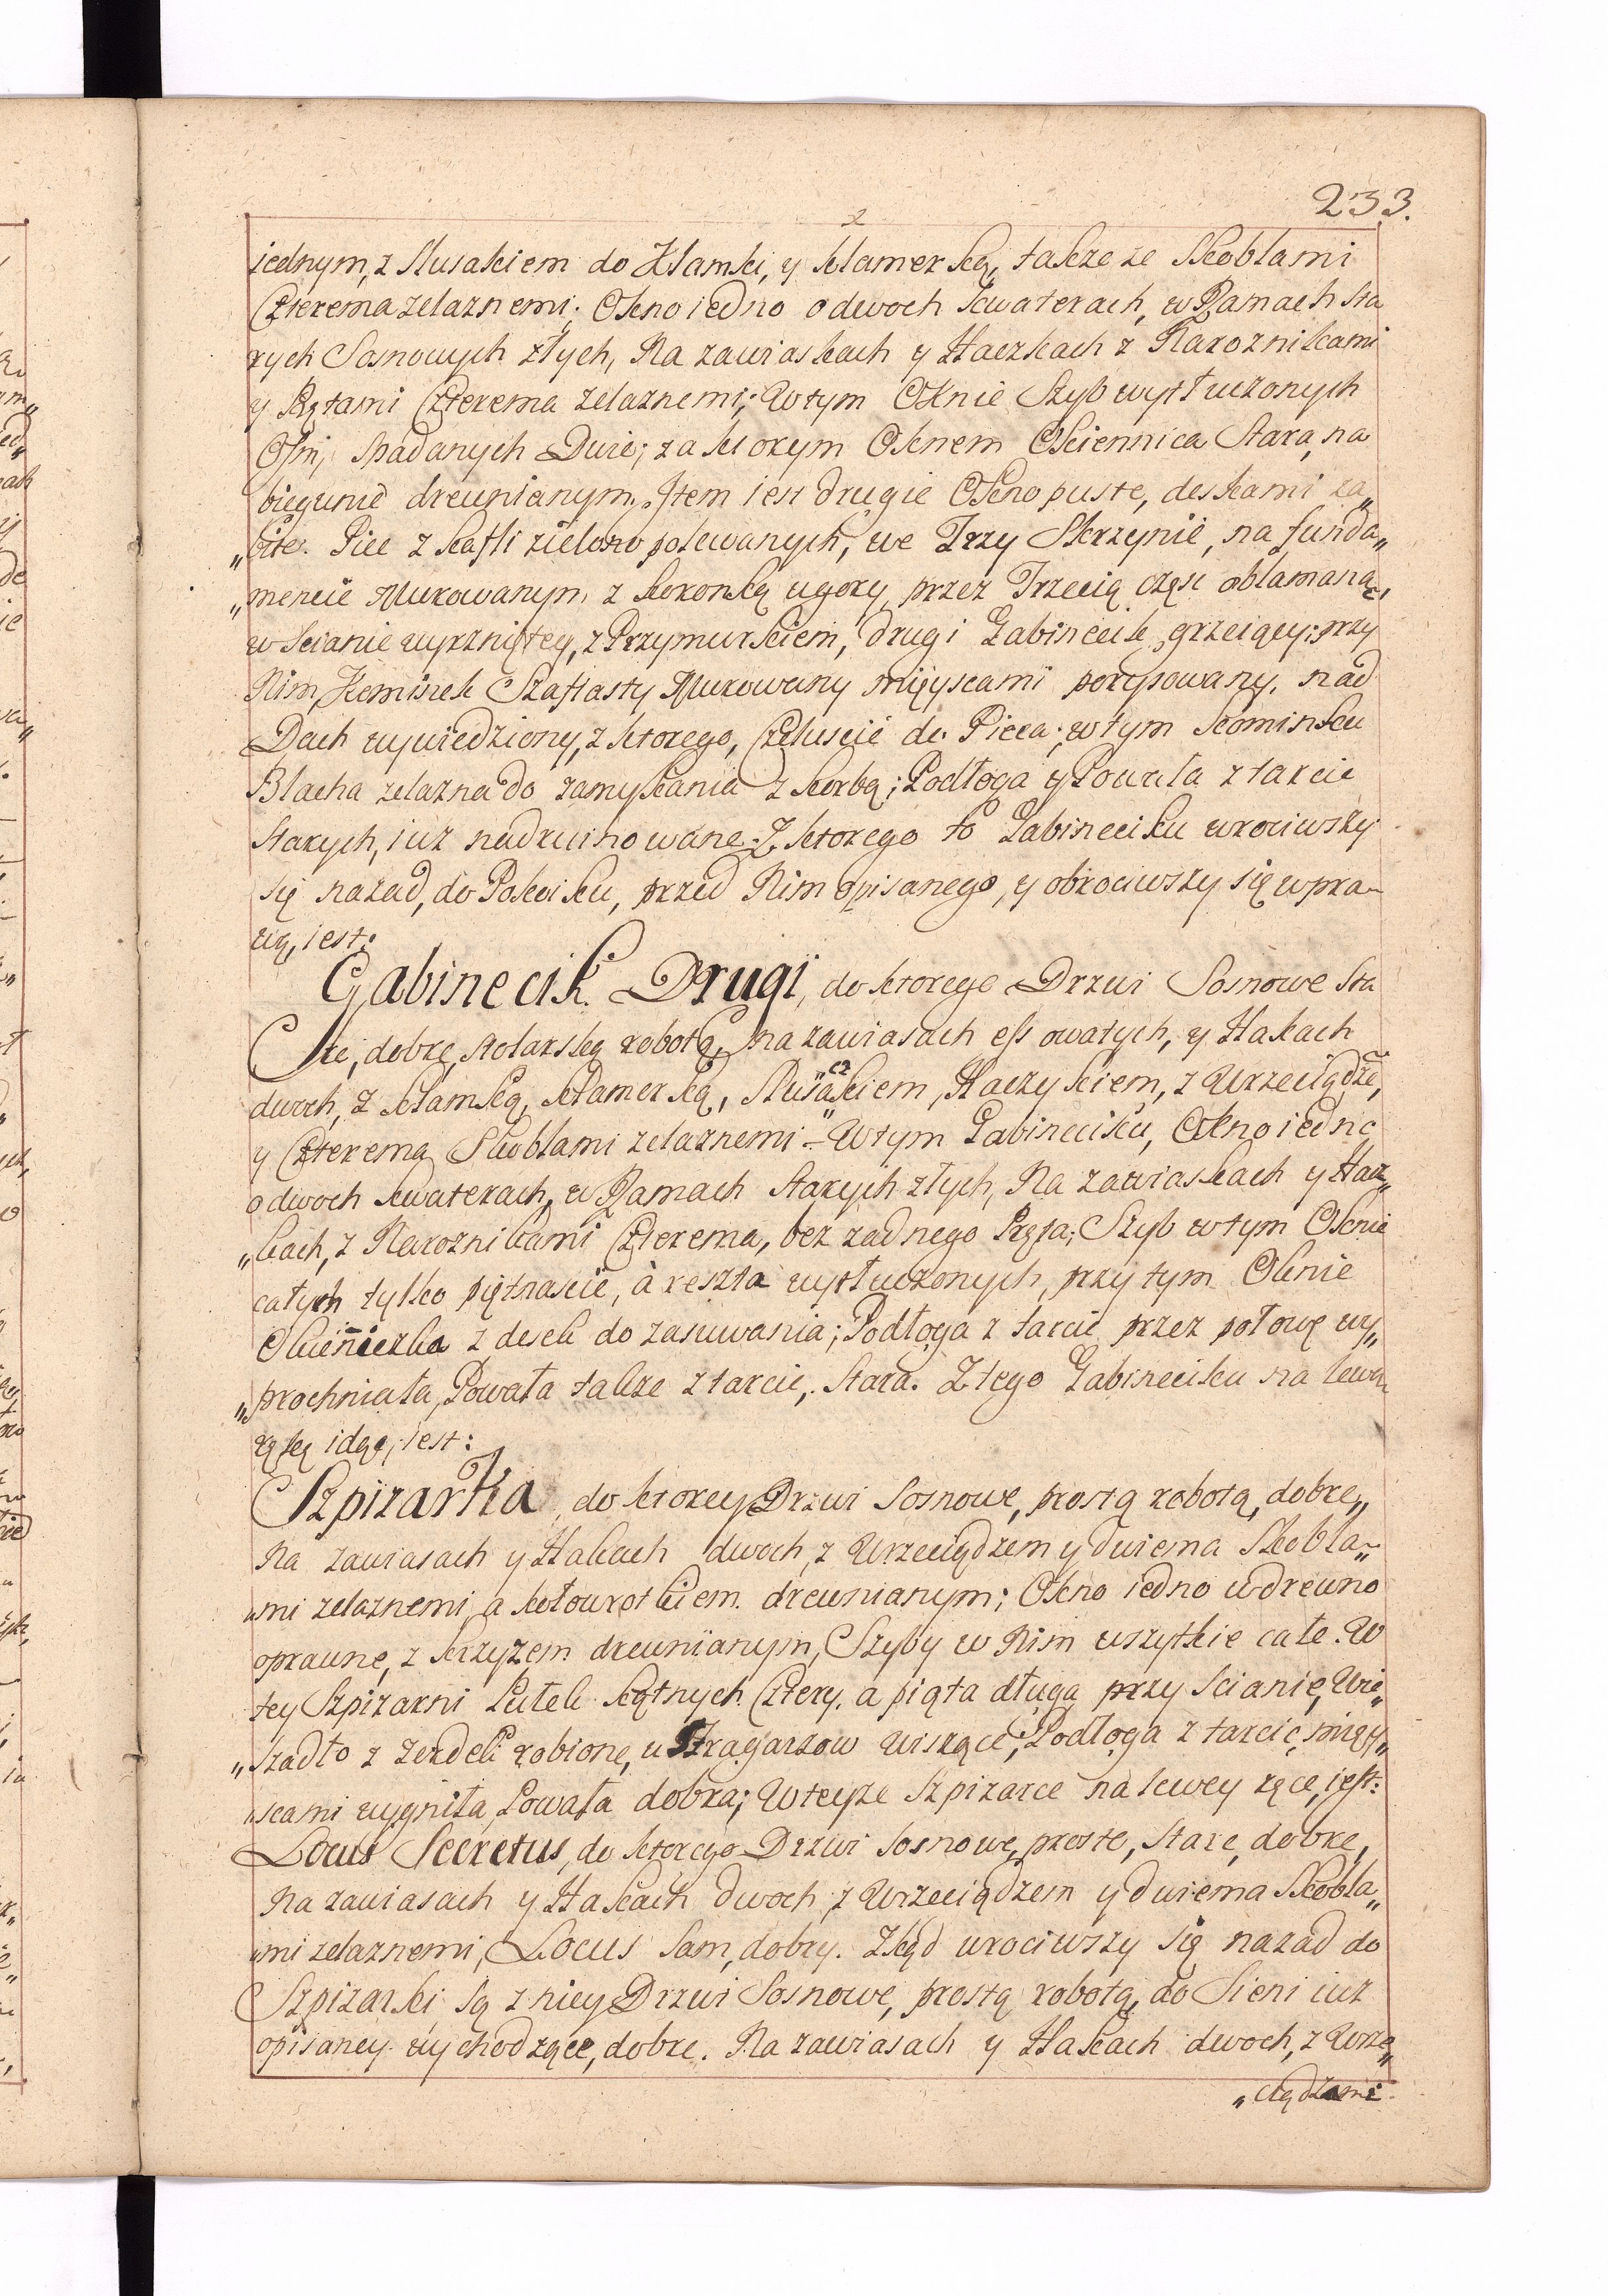 233.
iednym, z Klusakiem do Klamki, y klamerką, takze ze Skoblami
Czterema zelaznemi; Okno iedno o dwoch kwaterach, w Ramach sta
rych Sosnowych złych, Na zawiaskach y Haczkach z Naroznikami
y Prętami Czterema zelaznemi; W tym Oknie Szyb wytłuczonych
Ośm, spadanych Dwie; za ktorym Oknem Okiennica Stara, na
biegunie drewnianym. Item iest drugie Okno puste, deskami za„
„bite. Piec z kafli zielono polewanych, we Trzy Skrzynie, na funda„
„mencie Murowanym, z koronką u gory, przez Trzecią częsc oblamaną,
w Scianie wyrzniętey, z Przymurkiem, drugi Gabinecik grzeiący; przy
Nim, Kominek Szafiasty Murowany mieyscami porysowany, nad
Dach wywiedziony, z ktorego, Czeluscie do Pieca; w tym kominku
Blacha zelazna do zamykania z korbą; Podłoga y Powała z tarcic
starych, iuz nadruinowane. Z ktorego to Gabineciku wrociwszy
się nazad, do Pokoiku, przed Nim opisanego, y obrociwszy się w pra„
wą, iest:
Gabinecik Drugi, do ktorego Drzwi Sosnowe sta
re, dobre, stolarską robotą, na zawiasach essowatych, y Hakach
dwoch, z klamką, klamerką, Klusaczkiem, Haczykiem, z Wrzeciądze,
y Czterema Skoblami zelaznemi – W tym Gabineciku, Okno iedno
o dwoch kwaterach, w Ramach starych złych, Na zawiaskach y Hacz„
„kach, z Naroznikami Czterema, bez zadnego Pręta; Szyb w tym Oknie
całych tylko piętnascie, à reszta wytłuczonych, przy tym Oknie
Okienniczka z desek do zasuwania; Podłoga z tarcic przez połowę wy„
„prochniała, Powała takze z tarcic, stara. Z tego Gabineciku na lewą
rękę idąc, iest:
Szpizarka, do ktorey Drzwi Sosnowe, prostą robotą, dobre„
Na zawiasach y Hakach dwoch, z Wrzeciądzem y dwiema Skobla„
„mi zelaznemi, a kołowrotkiem drewnianym; Okno iedno w drewno
oprawne, z krzyzem drewnianym, Szyby w Nim wszytkie całe. W
tey Szpizarni Pułek kątnych Cztery, a piąta długa przy scianie, Wie„
„szadło z zerdek robione, u Stragarzow wiszące; Podłoga z tarcic, miey„
„scami wygniła, Powała dobra; W teyze Szpizarce na lewey ręce, iest:
Locus Secretus, do ktorego Drzwi sosnowe, proste, stare, dobre,
Na zawiasach y Hakach dwoch, z Wrzeciądzem y dwiema Skobla„
„mi zelaznemi, Locus sam, dobry. Zkąd wrociwszy się nazad do
Szpizarki, są z niey Drzwi Sosnowe, prostą robotą, do Sieni iuz
opisaney wychodzące, dobre. Na zawiasach y Hakach dwoch, z Wrze„
„ciądzami